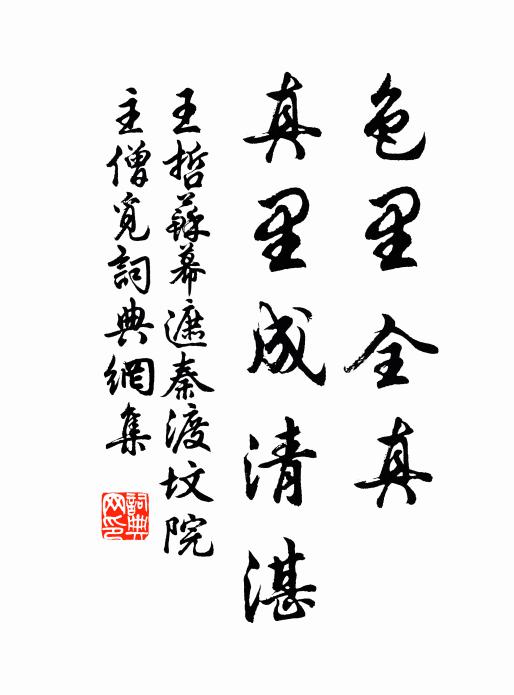 色里全真
真里成清湛
王哲蘇幕遮秦渡墳院
主僧覓詞典網集
詞典網印